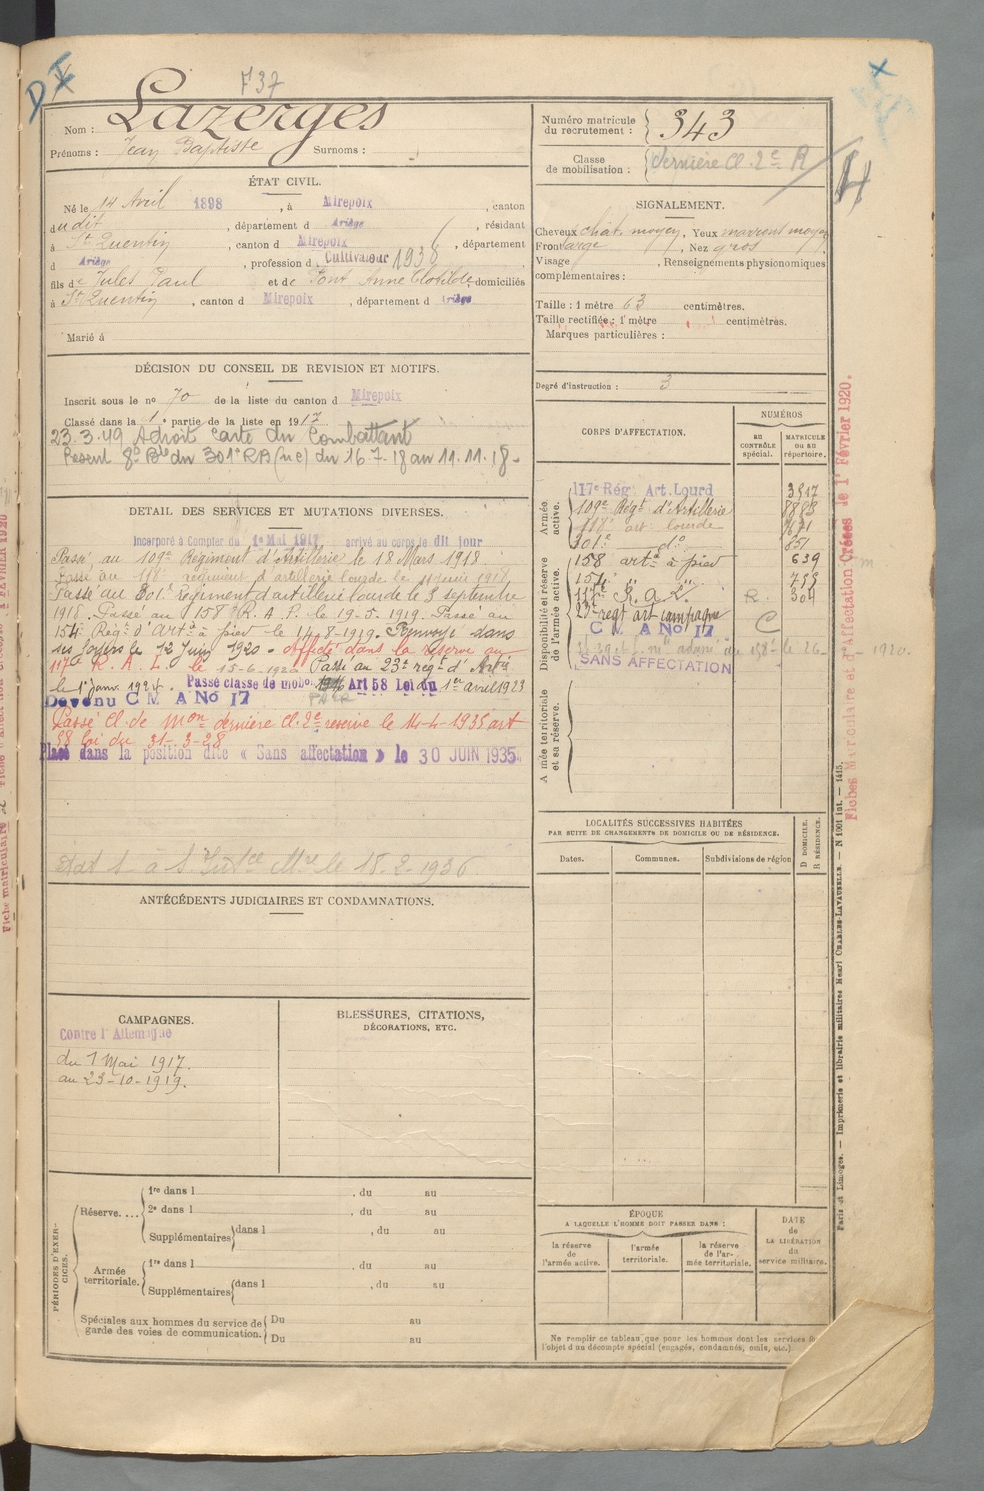 F37
Nom : Lazerges
Prénoms : Jean Baptiste Surnoms :
ÉTAT CIVIL.
Né le 14 Avril 1898, à Mirepoix, canton
dudit, département d Ariège, résidant
à St Quentin, canton d Mirepoix, département
d Ariège, profession de Cultivateur 1936
fils de Jules Paul et de Font Anne Clotilde domiciliés
à St Quentin, canton d Mirepoix, département d Ariège
Marié à
DÉCISION DU CONSEIL DE REVISION ET MOTIFS.
Inscrit sous le no 70 de la liste du canton d Mirepoix
Classé dans la 1e partie de la liste en 1917
23.3.49 Adroit carte du Combattant
Present 8e Bie du 301e RA (ue) du 16-7-18 au 11.11.18-
DETAIL DES SERVICES ET MUTATIONS DIVERSES.
Incorporé à Compter du 1e Mai 1917 arrivé au corps le dit jour
Passé au 109e Régiment d'Artillerie le 18 Mars 1918
Passé au 118e régiment d'artillerie lourde le 11 Juin 1918
Passé au 301e régiment d'artillerie lourde le 3 septembre
1918. Passé au 158e R. A. P. le 19-5-1919. Passé au
154e Régt d'Arta à pied le 14-8-1919. Renvoyé dans
ses foyers le 12 Juin 1920 - affecté dans la réserve au
117e R. A. L. le 15-6-1920 Passé au 23e régt d'Artie
le 1er janv. 1924. Passé classe de mobon Art 58 Loi du 1er avril 1923
Devenu C M A No 17
Passé cl. de mon dernière cl. 2e réserve le 14-4-1935 art
58 loi du 31-3-28
Placé dans la position dite « Sans affectation » le 30 JUIN 1935
le 18-2-1936
ANTÉCÉDENTS JUDICIAIRES ET CONDAMNATIONS.
CAMPAGNES.
Contre l'Allemagne
du 1 Mai 1917.
au 23-10-1919.
BLESSURES, CITATIONS,
DÉCORATIONS, ETC.
PÉRIODES D'EXERCICES.
Réserve.... 1re dans l , du au
2e dans l , du au
Supplémentaires dans l , du au
Armée territoriale. 1re dans l , du au
Supplémentaires dans l , du au
Spéciales aux hommes du service de garde des voies de communication. Du au
Du au
Numéro matricule du recrutement : 343
Classe de mobilisation : dernière cl. 2e R
SIGNALEMENT.
Cheveux chat. moyen, Yeux marront moyen
Front large, Nez gros
Visage , Renseignements physionomiques
complémentaires :
Taille : 1 mètre 63 centimètres.
Taille rectifiée : 1 mètre centimètres.
Marques particulières :
Degré d'instruction : 3
CORPS D'AFFECTATION.
NUMÉROS
au contrôle spécial.
MATRICULE ou au répertoire.
Armée active.
117e Rég. Art. Lourd 3517
109e Régt d'Artillerie
118e art lourde
301e do 651
Disponibilité et réserve de l'armée active.
158 arta à pied 639
154 "
117e R. A. L. R. 304
23e regt art campagne C
C M A No 17
SANS AFFECTATION
Armée territoriale et sa réserve.
LOCALITÉS SUCCESSIVES HABITÉES
PAR SUITE DE CHANGEMENTS DE DOMICILE OU DE RÉSIDENCE.
D DOMICILE.
R RÉSIDENCE.
Dates. Communes. Subdivisions de région
ÉPOQUE
A LAQUELLE L'HOMME DOIT PASSER DANS :
la réserve de l'armée active.
l'armée territoriale.
la réserve de l'armée territoriale.
DATE de LA LIBÉRATION du service militaire.
Ne remplir ce tableau que pour les hommes dont les services
l'objet d'un décompte spécial (engagés, condamnés, omis, etc.).
Fiches Matriculaire et d'Affectation Créées le 1er Février 1920.
Paris et Limoges. — Imprimerie et librairie militaires Henri CHARLES-LAVAUZELLE. — N 1001 int. — 1415.